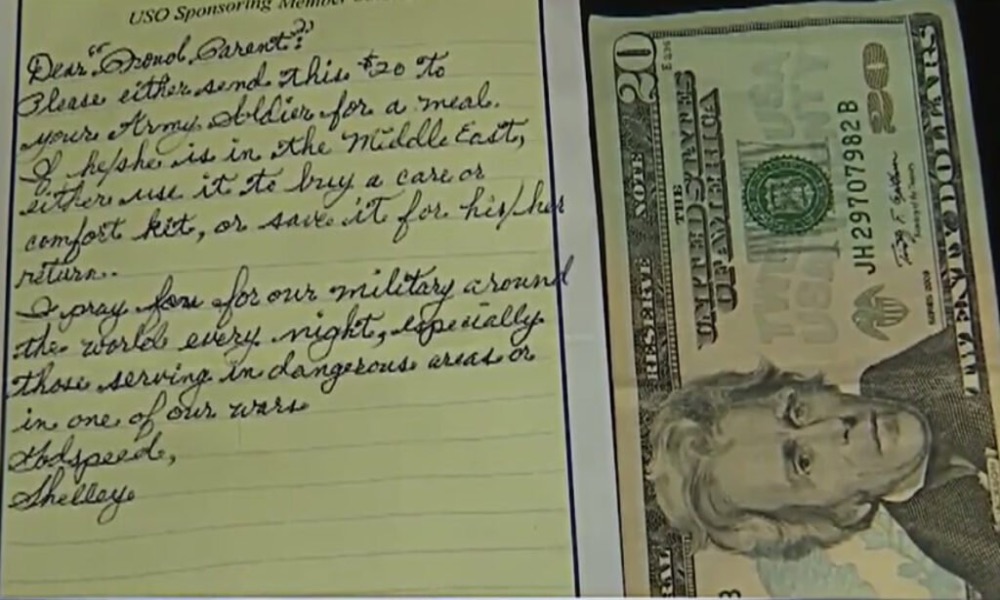 USO Sponsoring Member
Dear "Proud Parent":
Please either send this $20 to
your Army Soldier for a meal.
If he/she is in the Middle East,
either use it to buy a care or
comfort kit, or save it for his/her
return.
I pray for our military around
the world every night, especially
those serving in dangerous areas or
in one of our wars
Godspeed,
Shelley
20
RESERVE NOTE
THE
UNITED STATES
OF AMERICA
TWENTY
USA
JH29707982B
20
SERIES 2009
TWENTY DOLLARS